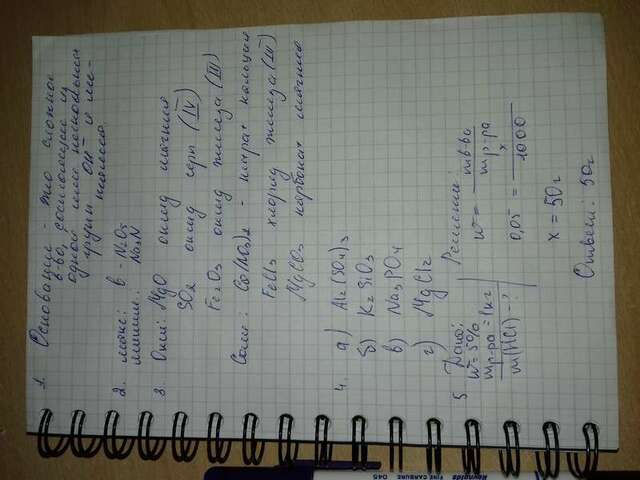 1. Основание - это сложное
в-во, состоящие из
одной или нескольких
групп OH⁻ и ме-
таллов.
2. макс: в - N₂O₅
миним: Na₃N
3. Окси: MgO оксид магния
SO₂ оксид серы (IV)
Fe₂O₃ оксид железа (III)
Соли: Ca(NO₃)₂ - нитрат кальция
FeCl₃ хлорид железа (III)
MgCO₃ карбонат магния
4. а) Al₂(SO₄)₃
б) K₂SiO₃
в) Na₃PO₄
г) MgCl₂
5 Дано: Решение:
w = 5% w = m в-ва / m р-ра
m р-ра = 1 кг
m(HCl) - ? 0,05 = x / 1000
x = 50г
Ответ: 50г
FINE CARBURE 045
Reynolds